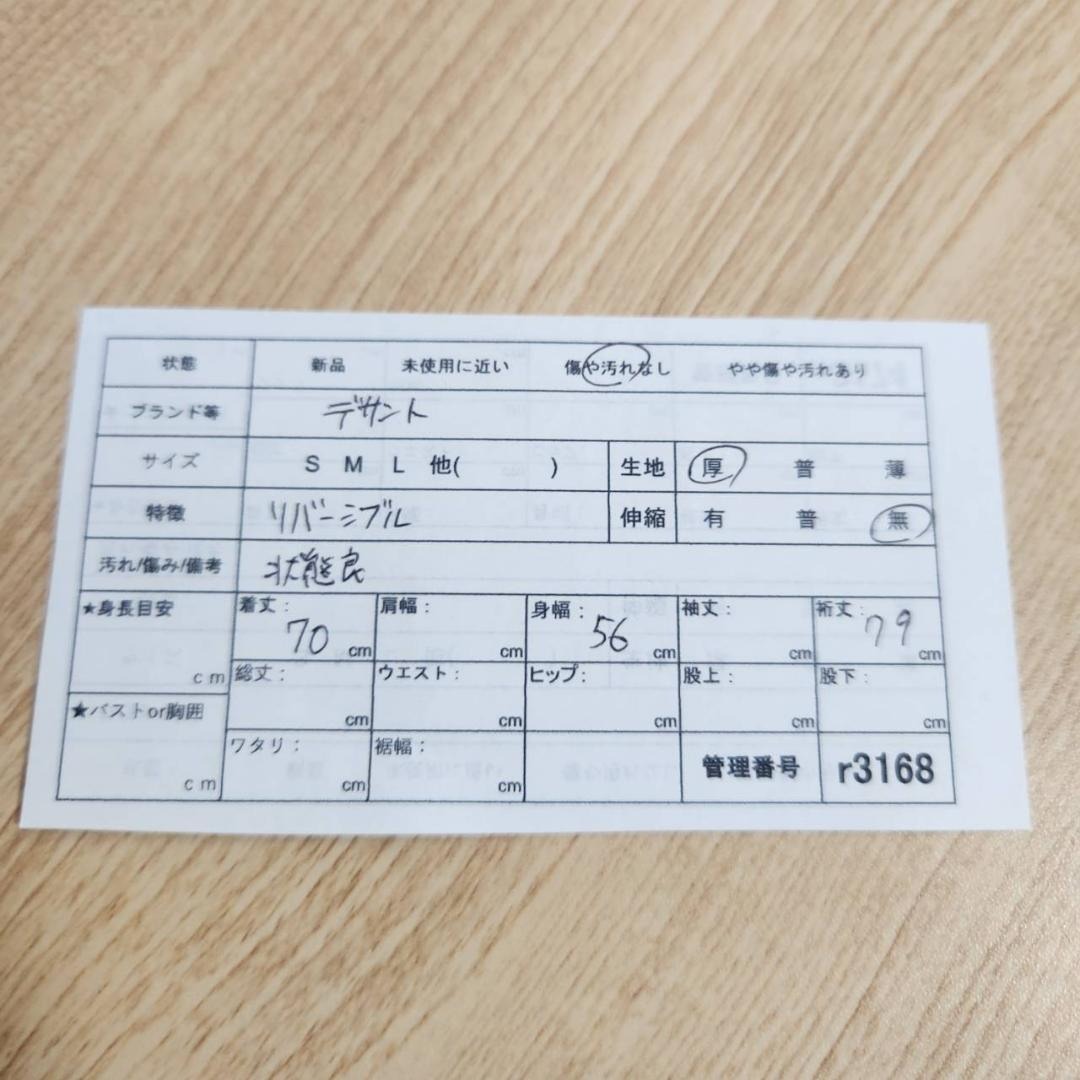 状態 新品 未使用に近い 傷や汚れなし やや傷や汚れあり
ブランド等 デサント
サイズ S M L 他( ) 生地 厚 普 薄
特徴 リバーシブル 伸縮 有 普 無
汚れ/傷み/備考 状態良
★身長目安 cm 着丈: 70 cm 肩幅: cm 身幅: 56 cm 袖丈: cm 裄丈: 79 cm
総丈: cm ウエスト: cm ヒップ: cm 股上: cm 股下: cm
★バストor胸囲 cm ワタリ: cm 裾幅: cm 管理番号 r3168